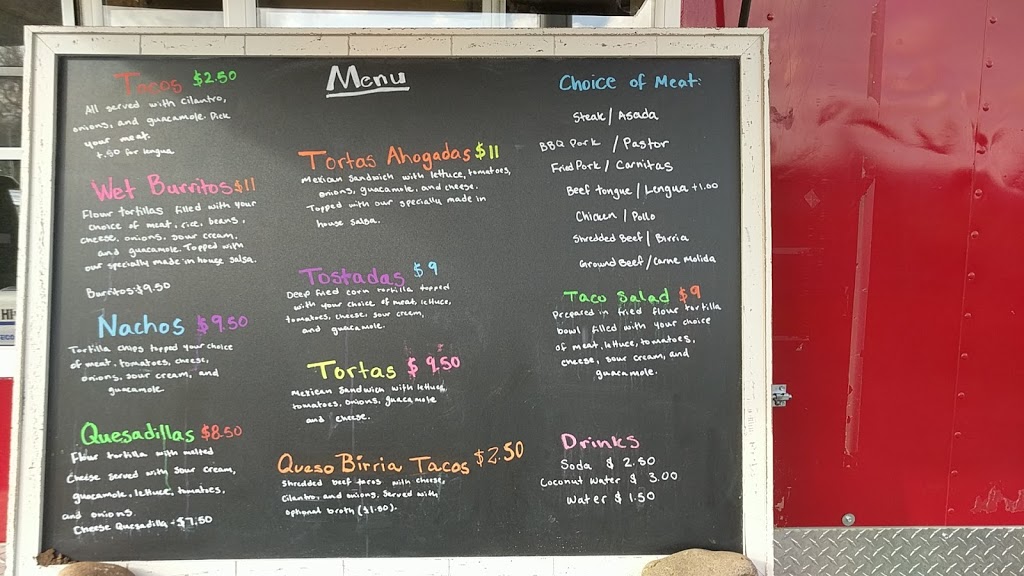 Tacos $2.50
All served with cilantro,
onions, and guacamole. Pick
your meat.
+.50 for lengua
Wet Burritos $11
Flour tortillas filled with your
choice of meat, rice, beans,
cheese, onions, sour cream,
and guacamole. Topped with
our specially made in house salsa.
Burritos $9.50
Nachos $9.50
Tortilla chips topped your choice
of meat, tomatoes, cheese,
onions, sour cream, and
guacamole.
Quesadillas $8.50
Flour tortilla with melted
cheese served with sour cream,
guacamole, lettuce, tomatoes,
and onions.
Cheese Quesadilla - $7.50
Menu
Tortas Ahogadas $11
Mexican Sandwich with lettuce, tomatoes,
onions, guacamole, and cheese.
Topped with our specially made in
house salsa.
Tostadas $9
Deep fried corn tortilla topped
with your choice of meat, lettuce,
tomatoes, cheese, sour cream,
and guacamole.
Tortas $9.50
Mexican Sandwich with lettuce,
tomatoes, onions, guacamole
and cheese.
Queso Birria Tacos $2.50
Shredded beef tacos with cheese,
cilantro, and onions, served with
optional broth ($1.00).
Choice of Meat:
Steak / Asada
BBQ Pork / Pastor
Fried Pork / Carnitas
Beef tongue / Lengua +1.00
Chicken / Pollo
Shredded Beef / Birria
Ground Beef / Carne Molida
Taco Salad $9
Prepared in fried flour tortilla
bowl filled with your choice
of meat, lettuce, tomatoes,
cheese, sour cream, and
guacamole.
Drinks
Soda $ 2.50
Coconut Water $ 3.00
Water $ 1.50